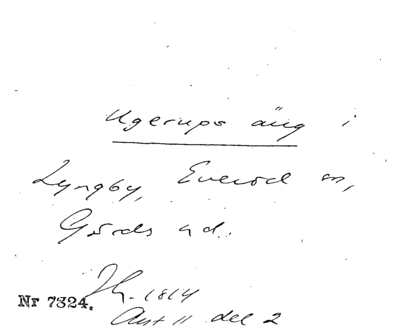 Ugerups äng i
Lyngby, Everöd sn,
Gärds hd.
Jh. 1814
Nr 7324.
Akt 11 del 2